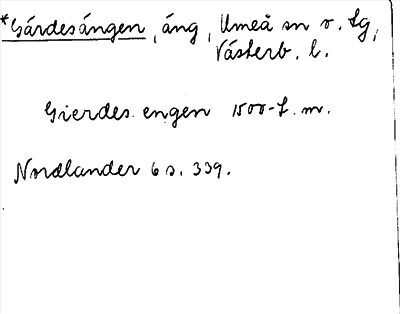 *Gärdesängen, äng, Umeå sn o. tg,
Västerb. l.
Gierdes engen 1500-t. m.
Nordlander 6 s. 339.